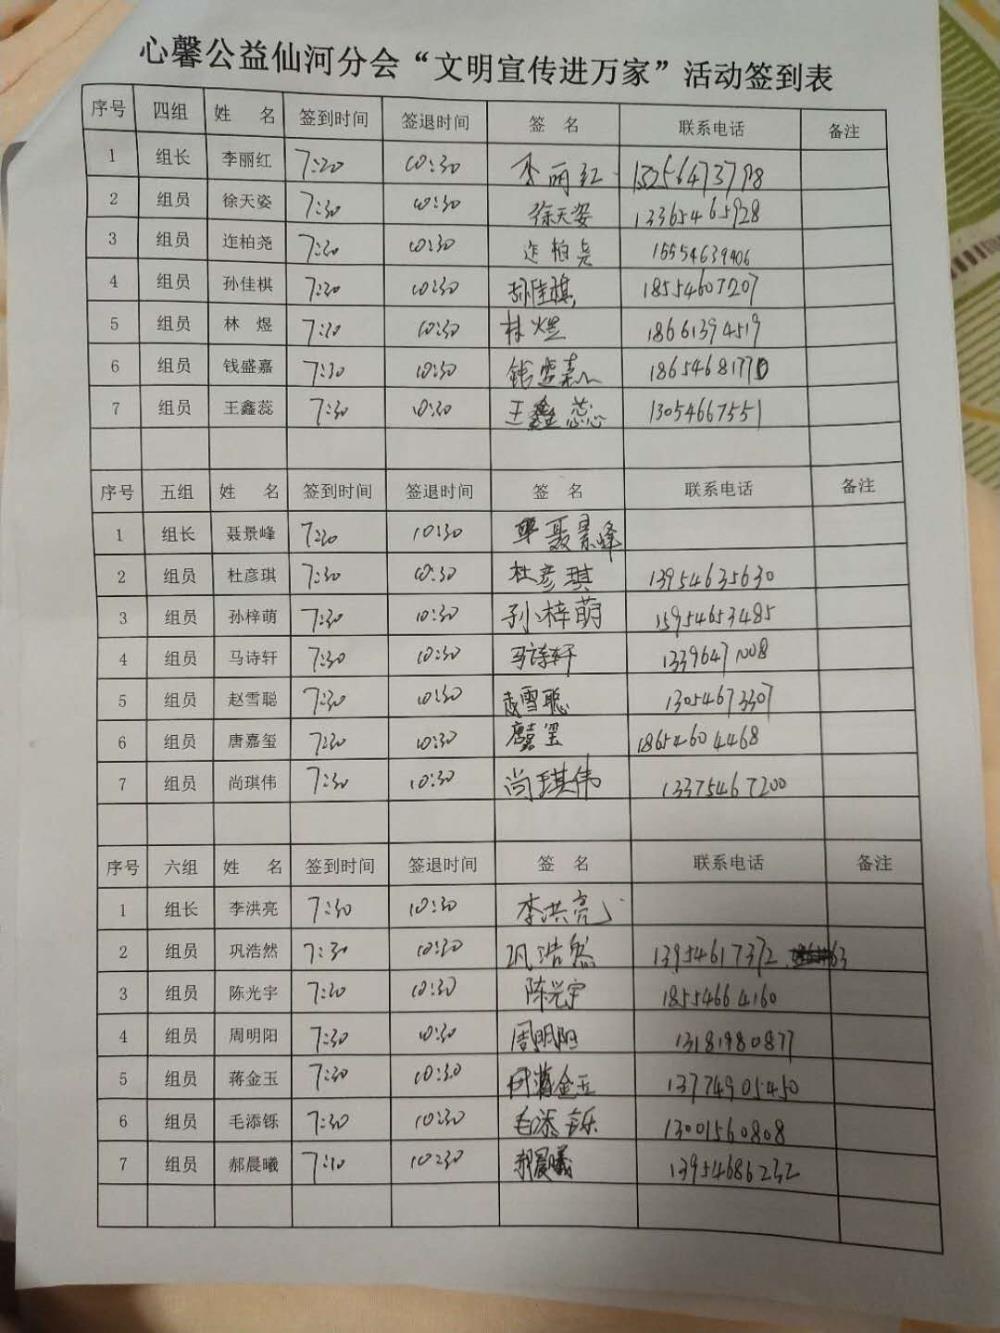 心馨公益仙河分会“文明宣传进万家”活动签到表
序号 四组 姓 名 签到时间 签退时间 签 名 联系电话 备注
1 组长 李丽红 7:20 10:30 李丽红 13256473798
2 组员 徐天姿 7:30 10:30 徐天姿 13365465928
3 组员 迮柏尧 7:30 10:30 迮柏尧 15554639406
4 组员 孙佳棋 7:30 10:30 孙佳棋 18554607207
5 组员 林 煜 7:30 10:30 林煜 18661394519
6 组员 钱盛嘉 7:30 10:30 钱盛嘉 18654681770
7 组员 王鑫蕊 7:30 10:30 王鑫蕊 13054667551
序号 五组 姓 名 签到时间 签退时间 签 名 联系电话 备注
1 组长 聂景峰 7:20 10:30 聂景峰
2 组员 杜彦琪 7:30 10:30 杜彦琪 13954635630
3 组员 孙梓萌 7:30 10:30 孙梓萌 15954653485
4 组员 马诗轩 7:30 10:30 马诗轩 13396471008
5 组员 赵雪聪 7:30 10:30 赵雪聪 13054673307
6 组员 唐嘉玺 7:30 10:30 唐嘉玺 18654604468
7 组员 尚琪伟 7:30 10:30 尚琪伟 13375467200
序号 六组 姓 名 签到时间 签退时间 签 名 联系电话 备注
1 组长 李洪亮 7:30 10:30 李洪亮
2 组员 巩浩然 7:30 10:30 巩浩然 13954617372 63
3 组员 陈光宇 7:20 10:30 陈光宇 18554664160
4 组员 周明阳 7:30 10:30 周明阳 13181980877
5 组员 蒋金玉 7:30 10:30 蒋金玉 13774905450
6 组员 毛添铄 7:30 10:30 毛添铄 13001560808
7 组员 郝晨曦 7:10 10:30 郝晨曦 13954686232